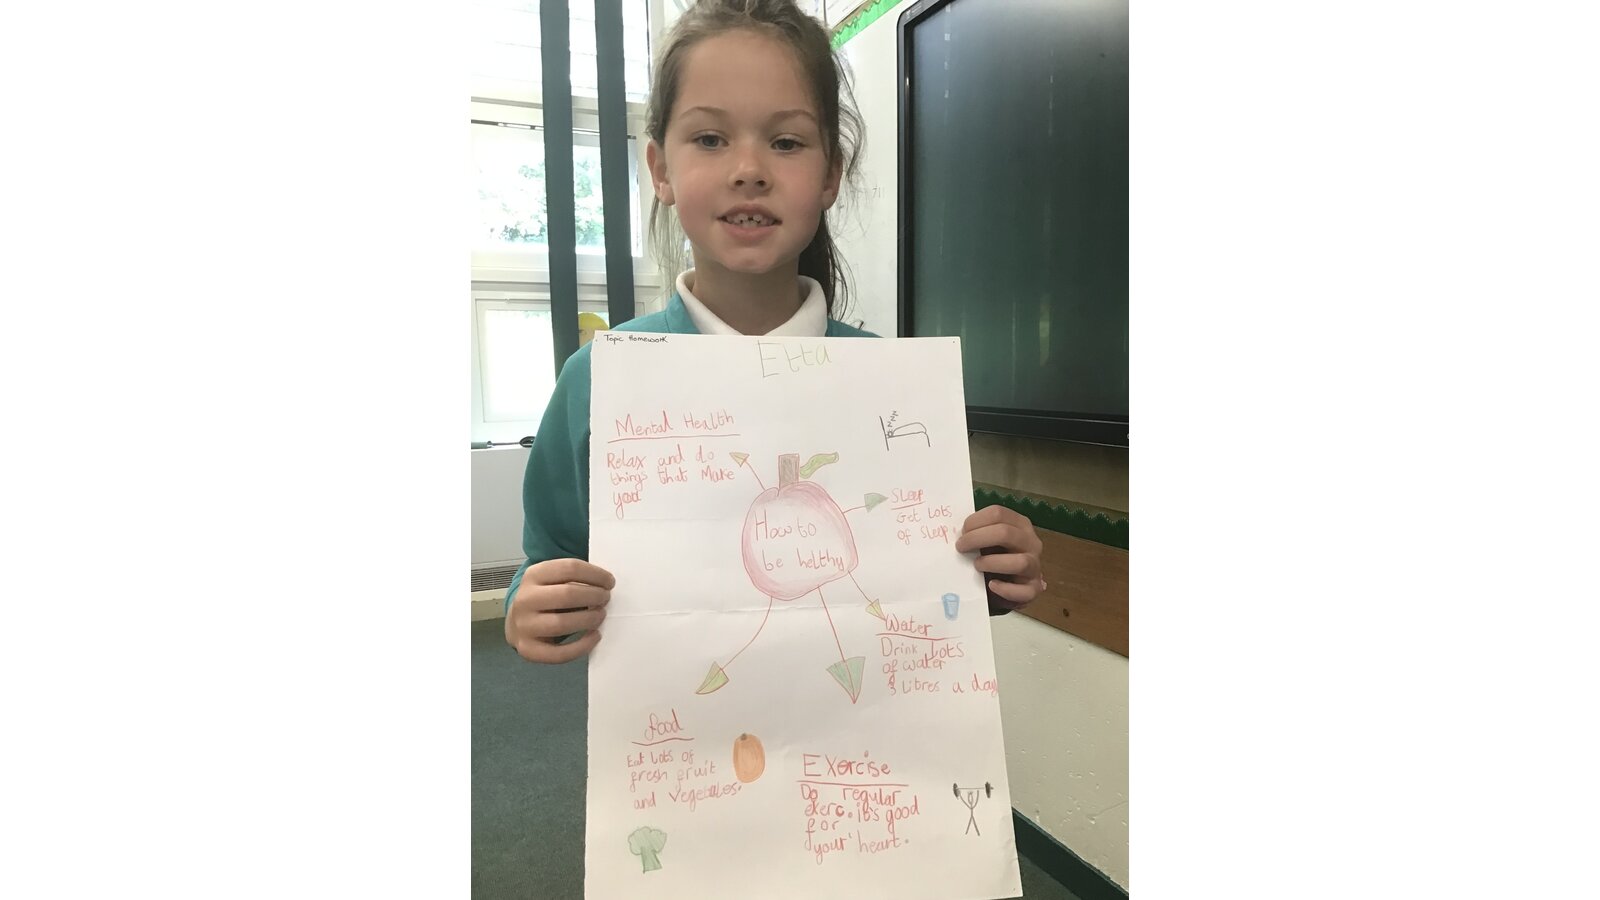 Topic Homework
Etta
Mental Health
Relax and do
things that make
you
zzz
How to
be helthy
Sleep
Get Lots
of sleep.
Water
Drink Lots
of water
3 Litres a day
food
Eat Lots of
fresh fruit
and vegetables.
Exercise
Do regular
exerc. it's good
for
your heart.